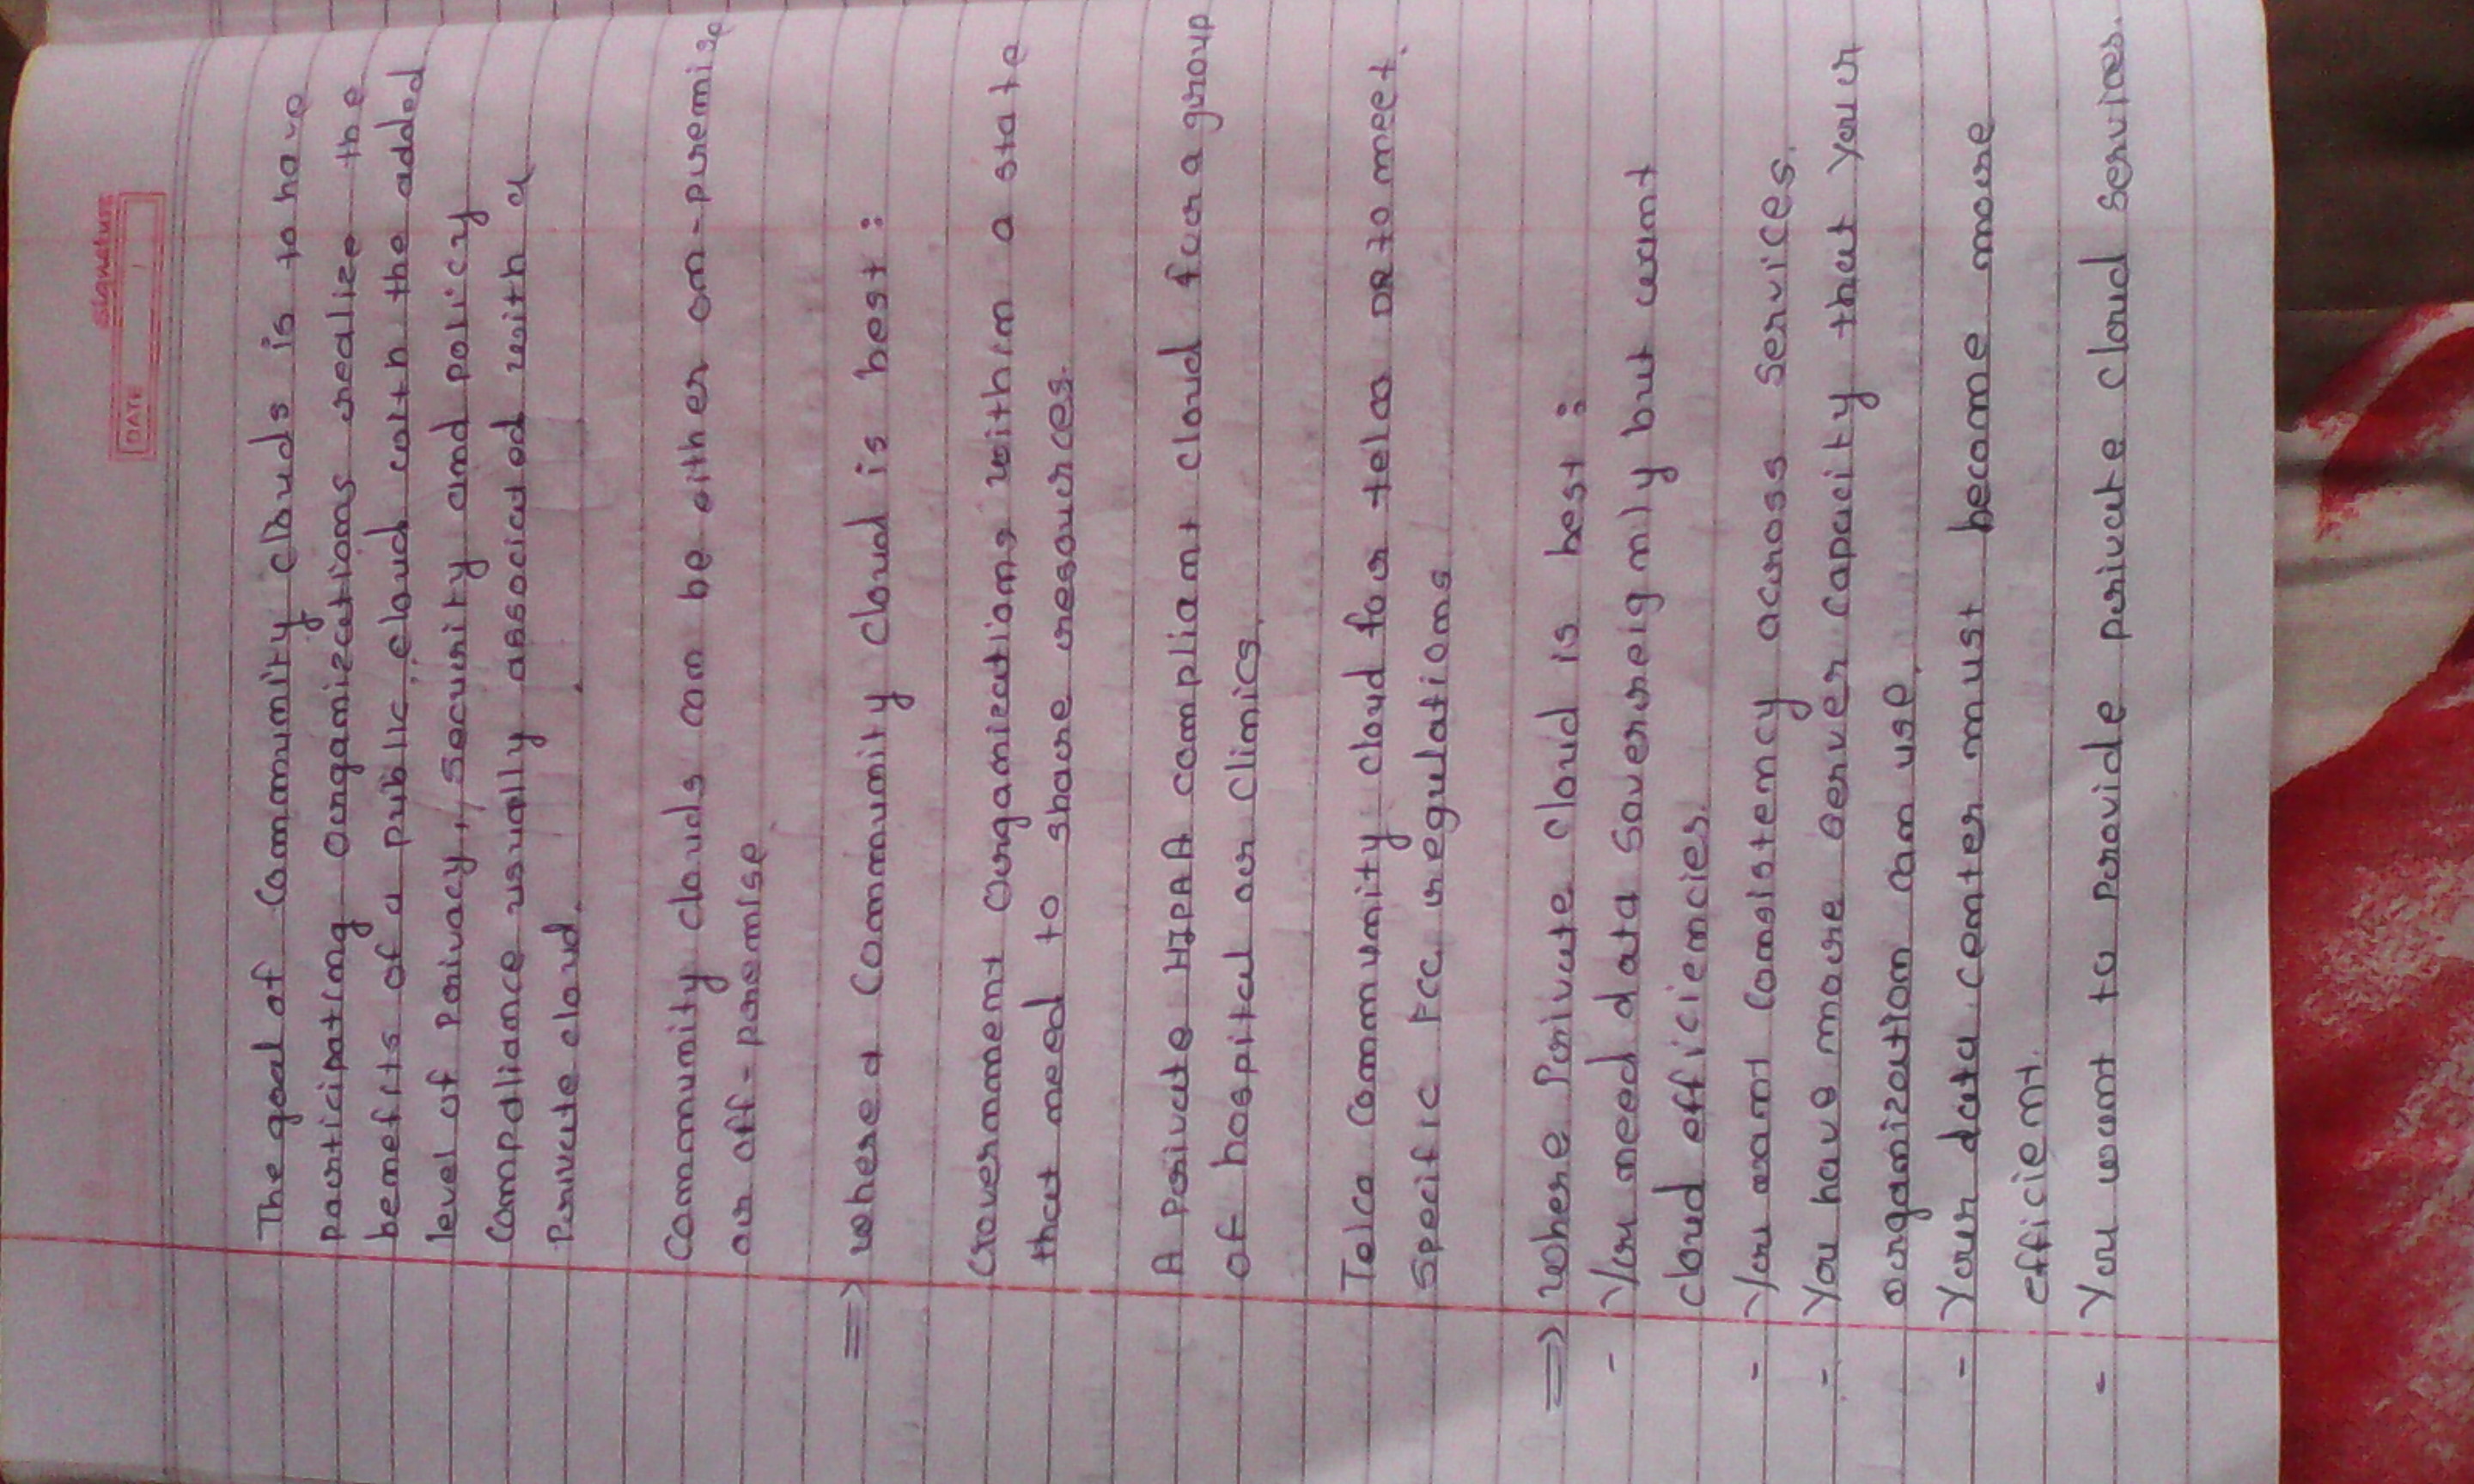 Signature
DATE
The goal of Community clouds is to have
participating Organizations realize the
benefits of a public cloud with the added
level of Privacy, Security and policy
Compaliance usually associated with a
Private cloud.
Community clouds can be either on-premise
or off-premise
=> where a Community Cloud is best :
Government Organizations within a state
that need to share resources.
A Private HIPAA compliant cloud for a group
of hospital or Clinics.
Telco Community cloud for telco DR to meet
Specific FCC regulations
=> Where Private Cloud is best :
- You need data Soverreignly but want
cloud efficiencies.
- You want Consistency across Services.
- You have more server capacity that your
organization can use.
- Your data center must become more
efficient.
- You want to Provide private Cloud Services.